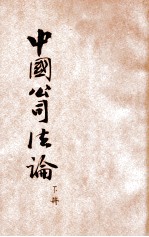 中國公司法論
下冊